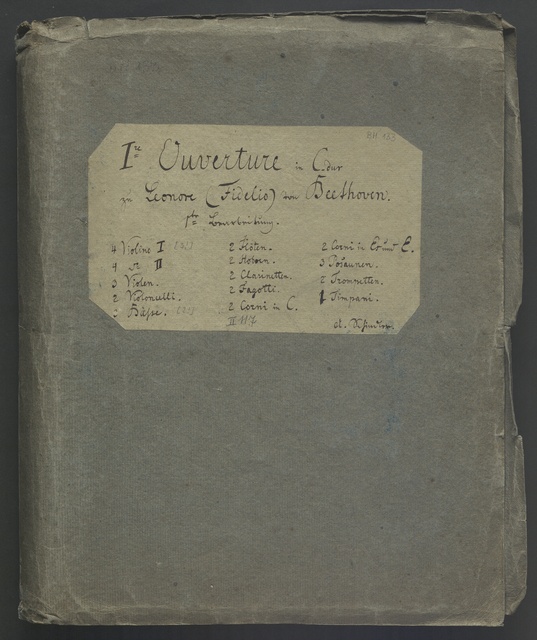 BH 133
Ire Ouverture in C dur
zu Leonore (Fidelio) von Beethoven.
1te Bearbeitung.
4 Violine I
4 " II
3 Violen.
2 Violonulli.
3 Bässe.
2 Flöten.
2 Hoboen.
2 Clarinetten.
2 Fagotti.
2 Corni in C.
II 117
2 Corni in Es und E.
3 Posaunen.
2 Trompetten.
1 Timpani.
A. Schindler